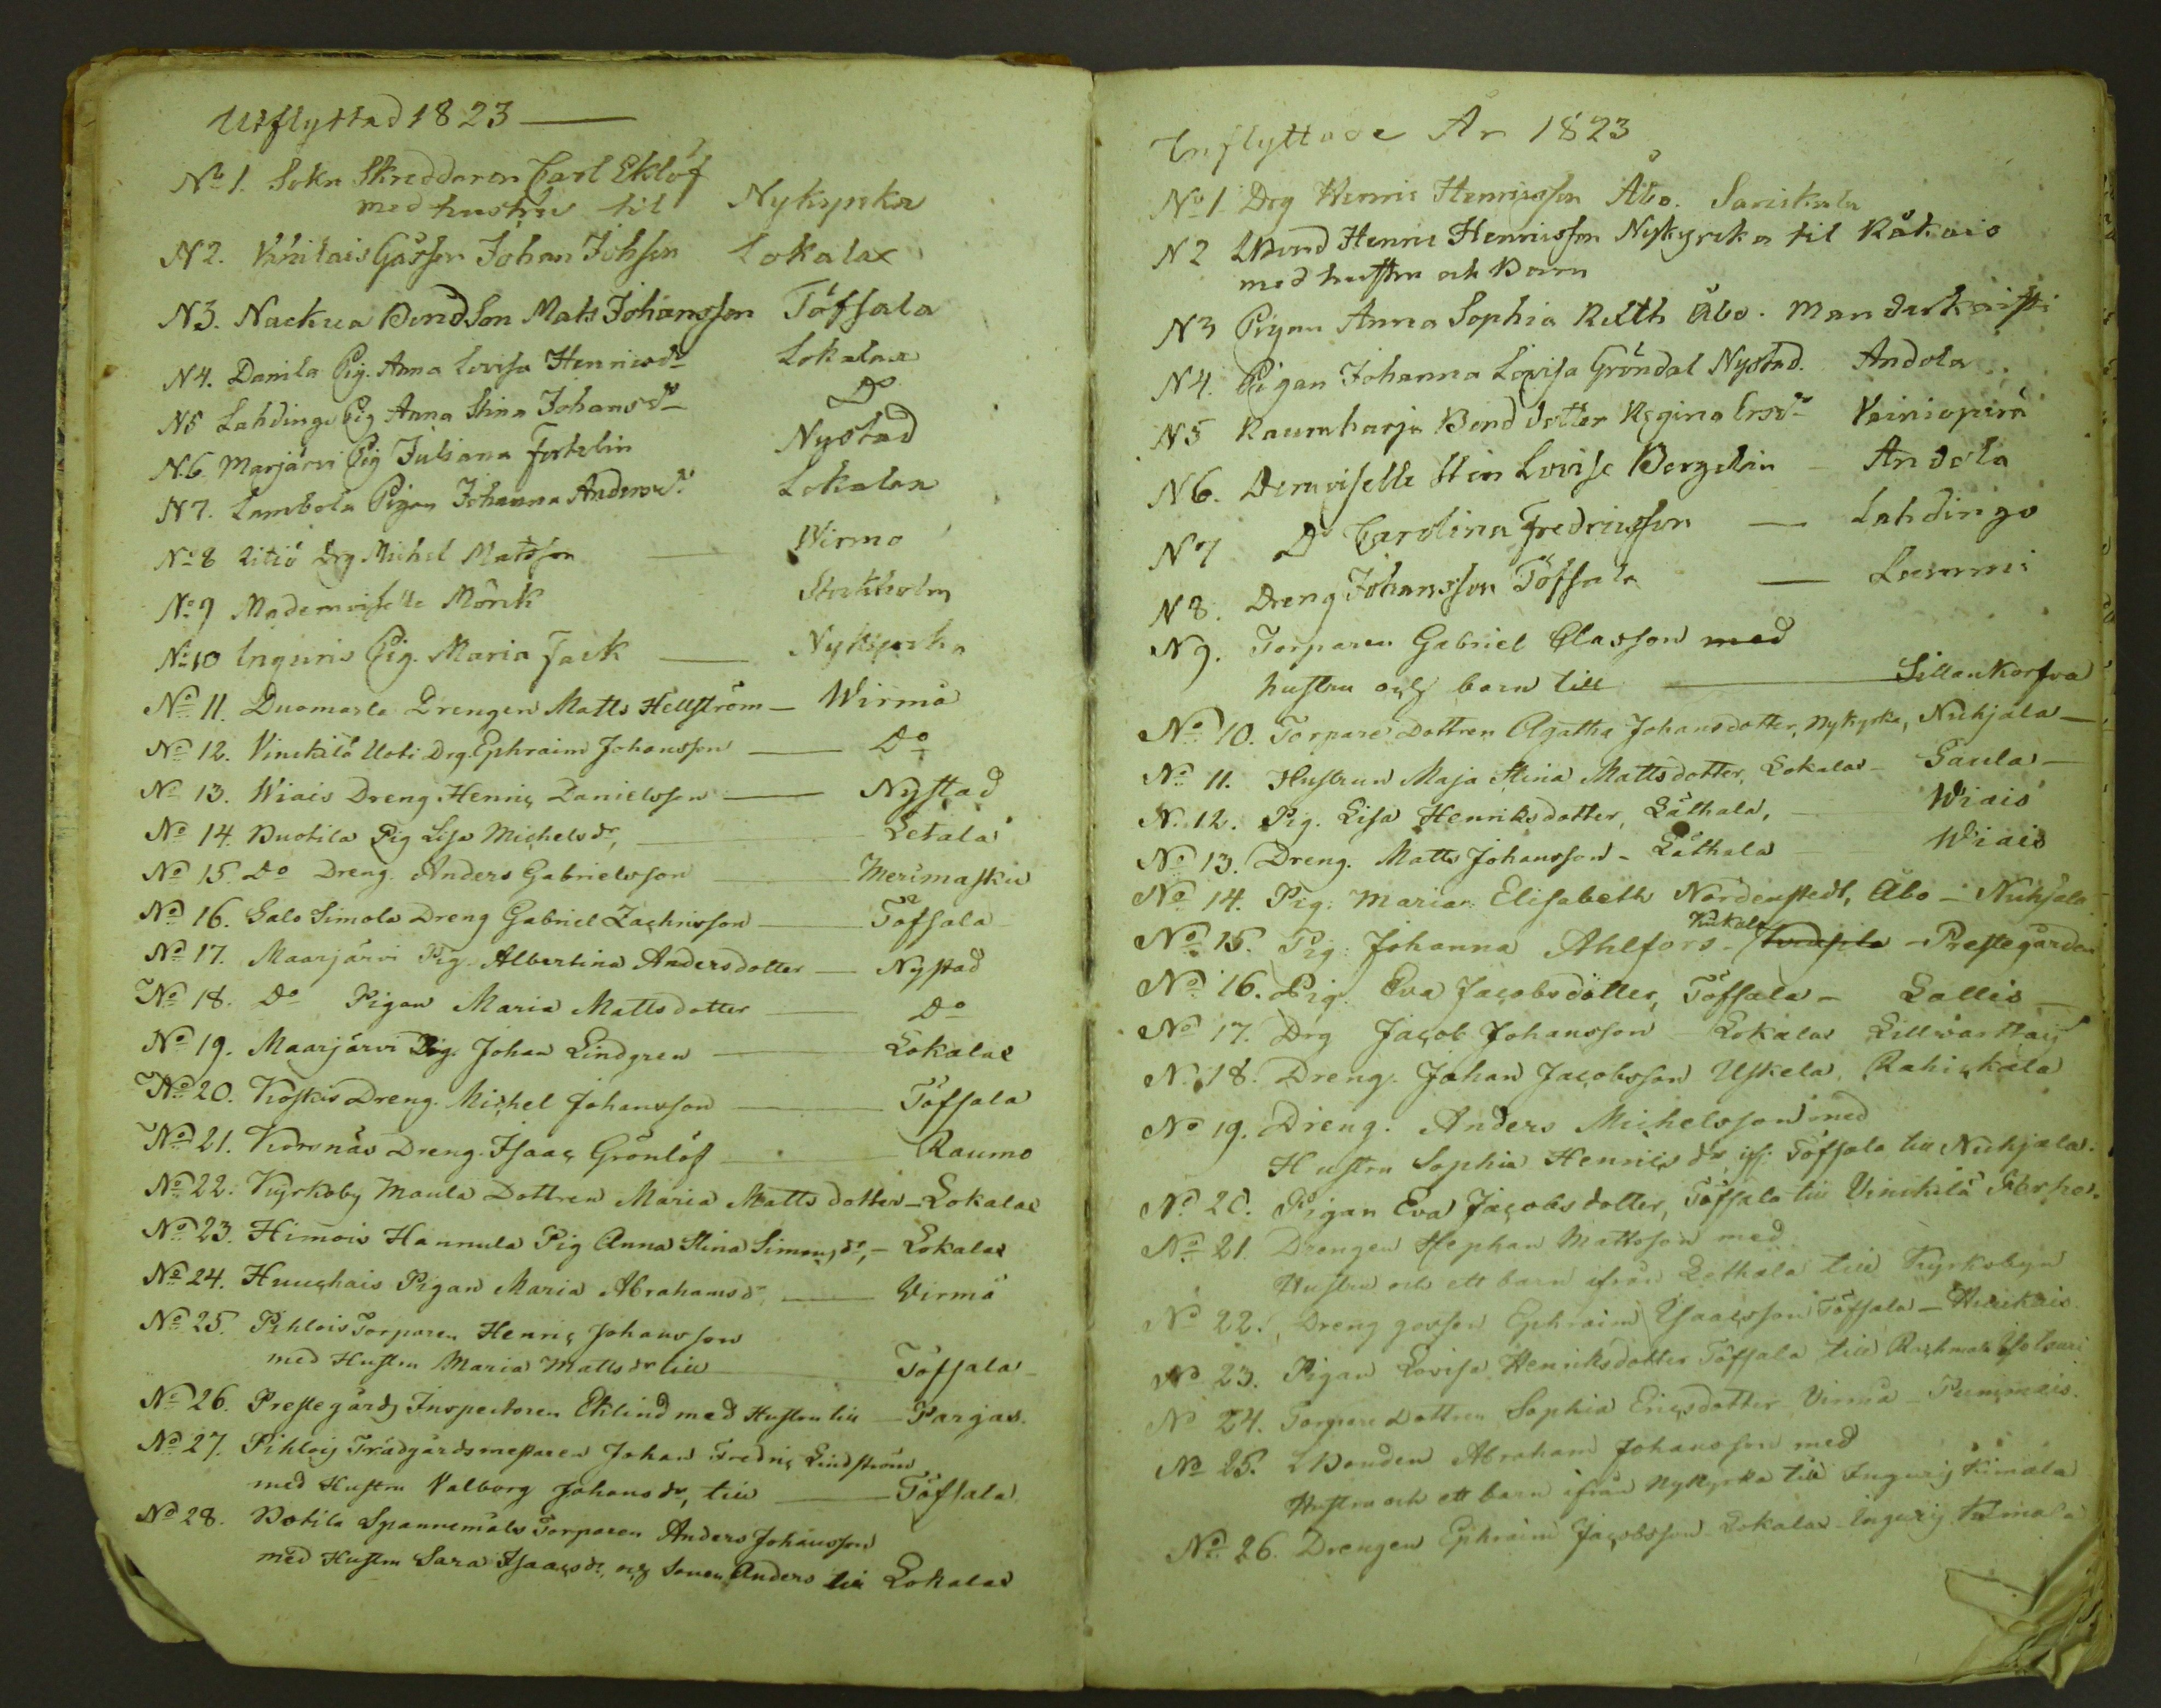 Utflyttad 1823
No 1. Sokn Skreddaren Carl Eklöf
med hustru til Nykyrka
N 2. Gåssen Johan Johsson Lokalax
N 3. Nackua BondSon Mats Johansson Töfsala
N 4. Danila Pig. Anna Lovisa Henricsdr Lokalax
N 5 Lahdingo Pig Anna Stina Johansdr Do
N. 6. Marjärvi Pig Juliana Nystad
N 7. Lambola Pigan Johanna Andersdr Lokalax
No 8 Ritiö Drg Michel Matsson Wirmo
No 9 Mademoiselle Mörck Stockholm
No 10 Inguris Pig. Maria Fack Nykyrka
No 11. Duomarla Drengen Matts Hellström Wirmå
No 12. Vinckilä Uoti Drg. Ephraim Johansson Do
No 13. Wiais Dreng Henric Danielsson Nystad
No 14. Buotila Pig Lisa Michelsdr, Letala
No 15. Do Dreng. Anders Gabrielsson Merimasku
No 16. Salo Simola Dreng Gabriel Zachrisson Töfsala
No 17. Maarjärvi Pig. Albertina Andersdotter Nystad
No 18. Do Pigan Maria Mattsdotter Do
No 19. Maarjärvi Drg. Johan Lindgren Lokalax
No 20. Koskis Dreng. Michel Johansson Töfsala
No 21. Korsnäs Dreng. Isaac Grönlöf Raumo
No 22. Kyrkoby Maula Dottren Maria Matts dotter Lokalax
No 23. Himois Hannula Pig Anna Stina Simonsdr, Lokalax
No 24. Huuchais Pigan Maria Abrahamsdr Virmå
No 25. Pihlois Torparen Henric Johansson
med Hustru Maria Mattsdr till Töfsala
No 26. Prestegårds Inspectoren Eklind med Hustru till Pargas.
No 27. Pihlois Trädgårdsmestaren Johan Fredric Lindström
med Hustru Valborg Johansdr, till Töfsala
No 28. Botila Spannemåls Torparen Anders Johansson
med Hustru Sara Isaacsdr, och Sonen Anders till Lokalax
Inflyttade År 1823
No 1 Drg Henric Henricsson Åbo. Sariskala
N 2 Bond Henric Henricsson Nykyrcka til Råkois
med hustru och Barn
N 3 Pigan Anna Sophia Åbo.
N 4. Pigan Johanna Lovisa Gröndal Nystad. Andola
N 5 Kaumharju Bond dotter Regina Ersdr Vainionperä
N 6. Demoiselle Lovisa Bergelin Andola
No 7 Do Carolina Fredricsson Lahdingo
N 8. Dreng Johansson Töfsala
N 9. Torparen Gabriel Classon med
hustru och barn till Sillankorfva
No 10. Torpare Dottren Agatha Johansdotter, Nykyrka, Nuhjala
No 11. Hustrun Maja Stina Mattsdotter, Lokalax Gaula
No 12. Pig. Lisa Henriksdotter, Läthala, Wiais
No 13. Dreng. Matts Johansson Läthala Wiais
No 14. Pig: Maria Elisabeth Nordenstedt, Åbo Nuhjala
No 15. Pig: Johanna Ahlfors Prestegården
No 16. Pig. Eva Jacobsdotter, Töfsala Lallis
No 17. Drg Jacob Johansson Lokalax
N. 18. Dreng. Johan Jacobsson Uskela, Rahickala
No 19. Dreng. Anders Michelsson med
Hustru Sophia Henricsdr, ifr: Töfsala till Nuhjala.
No 20. Pigan Eva Jacobsdotter, Töfsala till Vinckilä
No 21. Drengen Stephan Mattsson med
Hustru och ett barn ifrån Lethala till Kyrkobyn
No 22. Dreng gossen Ephraim Isaacsson Töfsala
No 23. Pigan Lovisa Henriksdotter Töfsala till
No 24. Torpare Dottren Sophia Ericsdotter Virmå
No 25. Bonden Abraham Johansson med
Hustru och ett barn ifrån Nykyrka till Ingurij Kimala
No 26. Drengen Ephraim Jacobsson Lokalax Ingurij Kimala